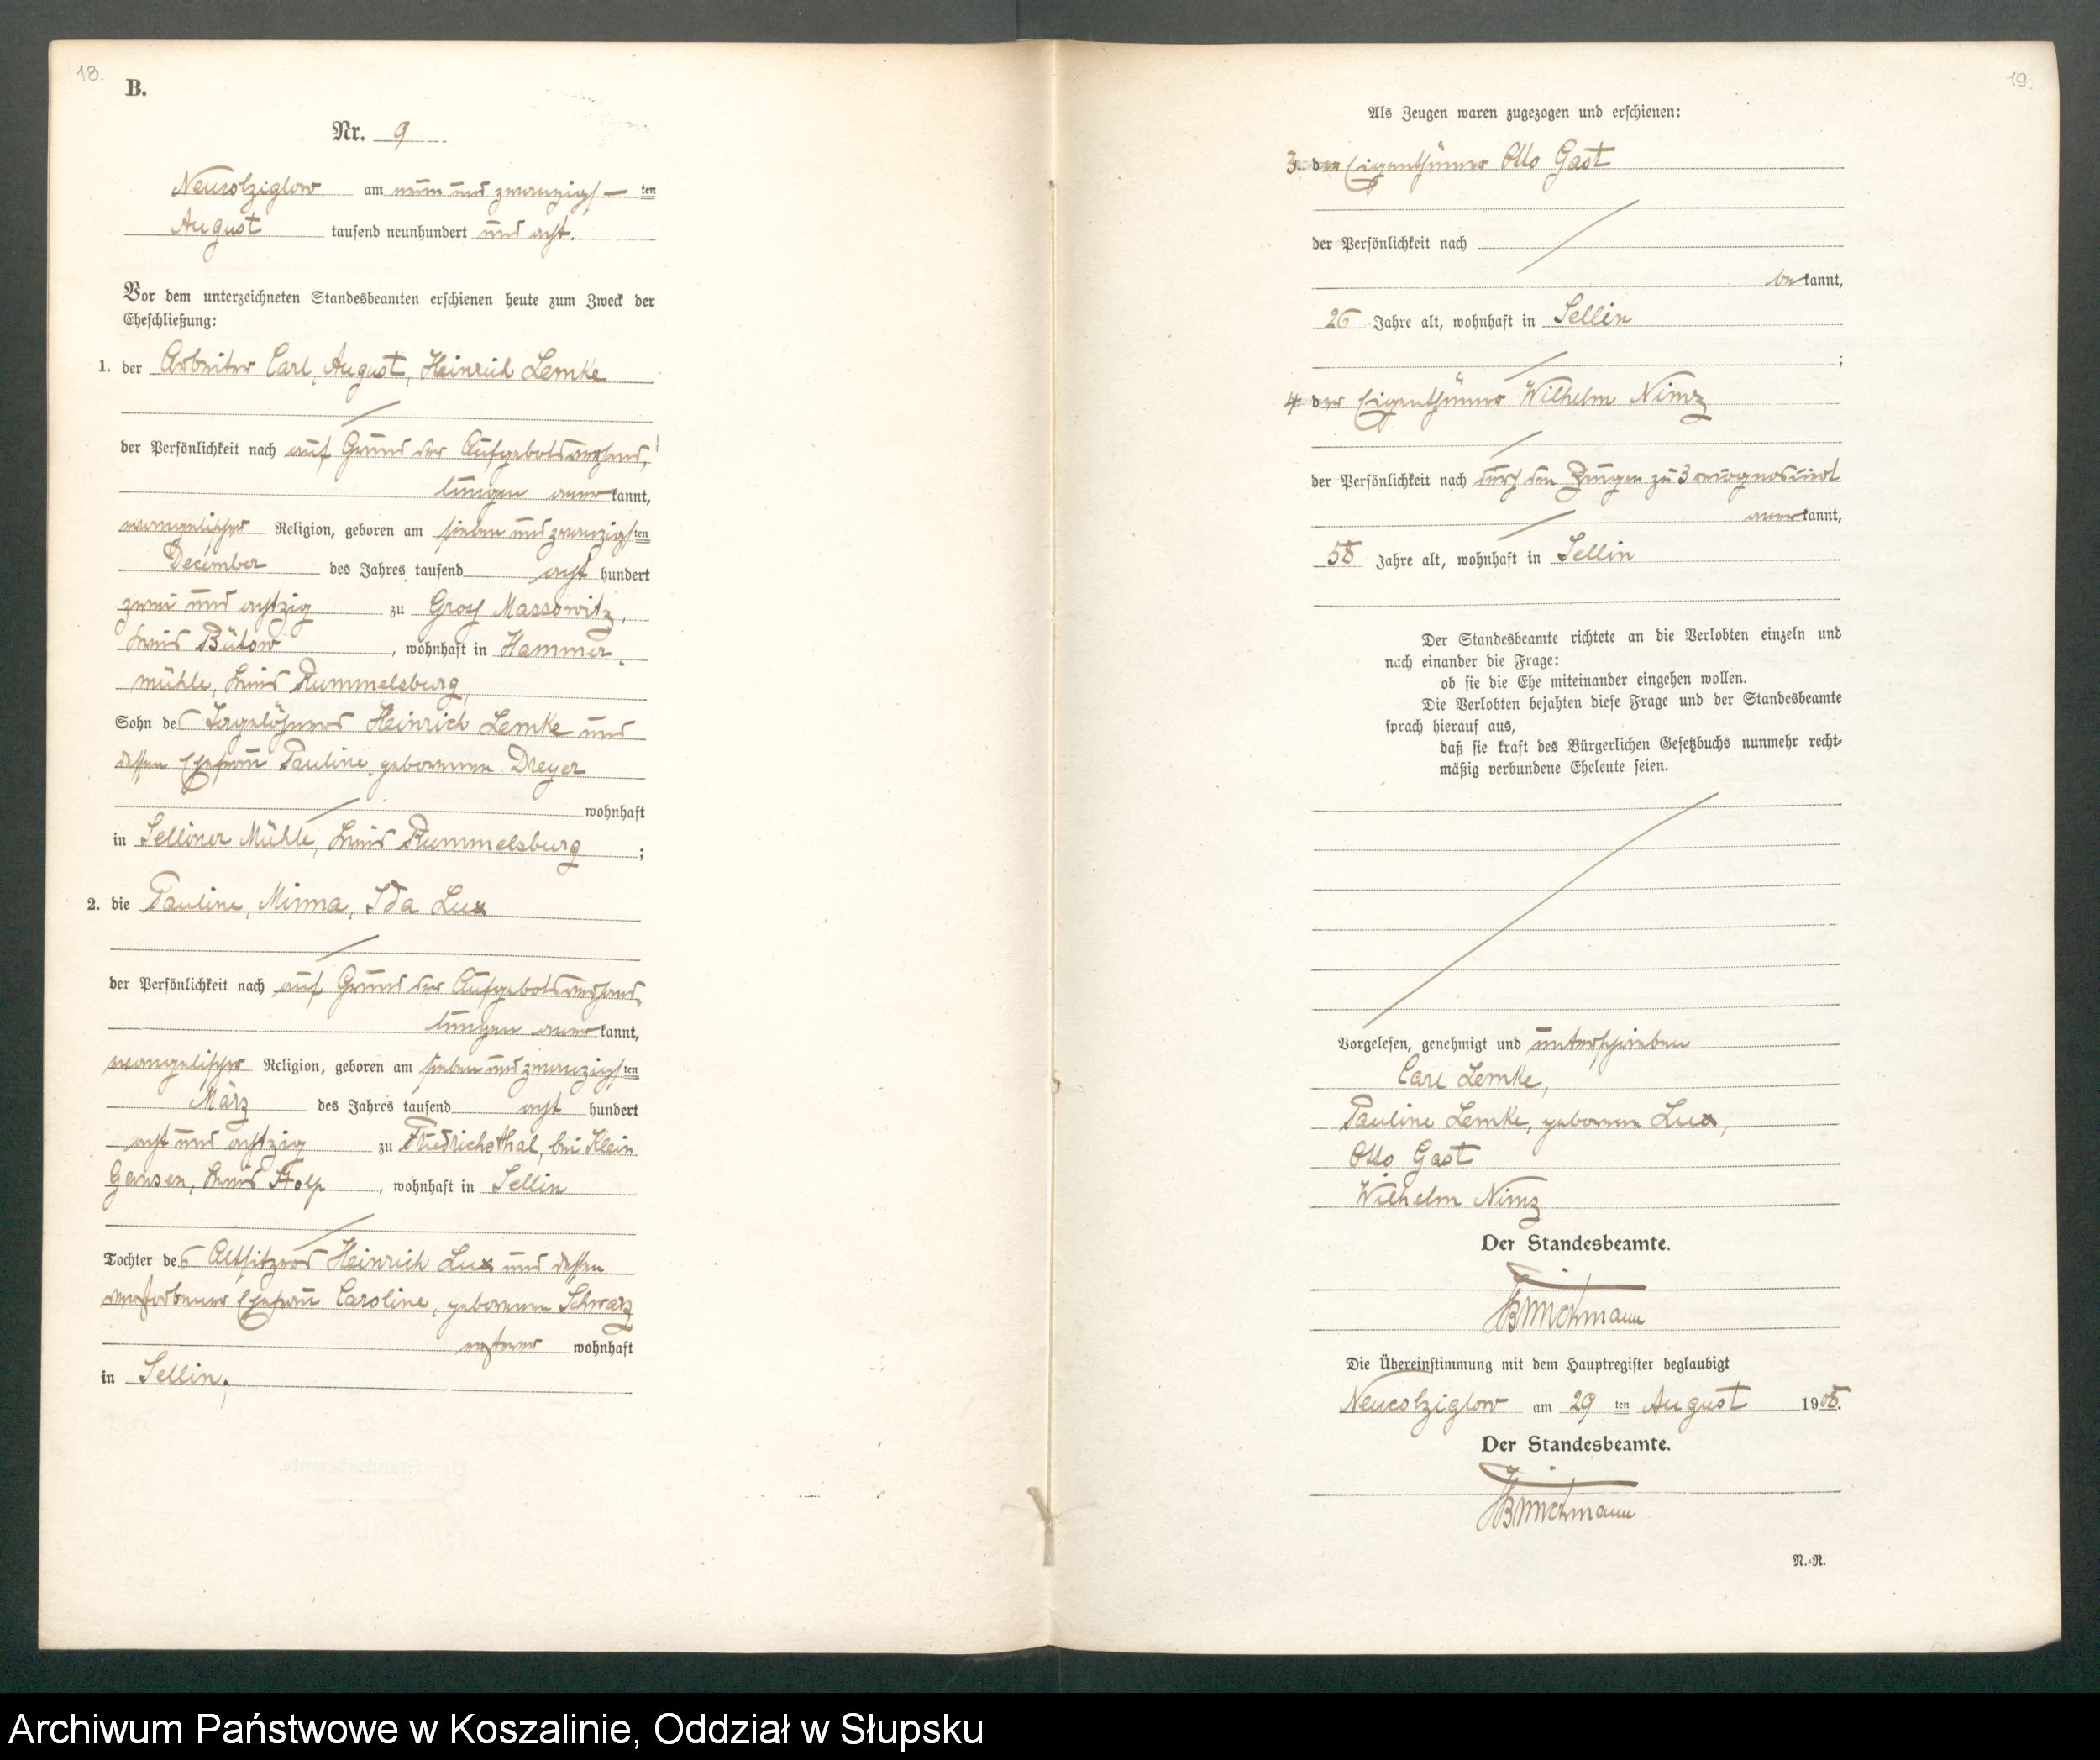 18.
B.
Nr. 9
Neukolziglow am neun und zwanzigs ten
August tausend neunhundert und acht.
Vor dem unterzeichneten Standesbeamten erschienen heute zum Zweck der
Eheschließung:
1. der Arbeiter Carl, August, Heinrich Lemke
der Persönlichkeit nach auf Grund der Aufgebotsverhand-
lungen aner kannt,
evangelischer Religion, geboren am sieben und zwanzigs ten
December des Jahres tausend acht hundert
zwei und achtzig zu Gross Massowitz,
Kreis Bütow, wohnhaft in Hammer-
mühle, Kreis Rummelsburg,
Sohn des Tagelöhners Heinrich Lemke und
dessen Ehefrau Pauline, geborenen Dreyer
wohnhaft
in Selliner Mühle, Kreis Rummelsburg;
2. die Pauline, Minna, Ida Lux
der Persönlichkeit nach auf Grund der Aufgebotsverhand-
lungen aner kannt,
evangelischer Religion, geboren am sieben und zwanzigs ten
März des Jahres tausend acht hundert
acht und achtzig zu Friedrichsthal, bei Klein
Gansen, Kreis Stolp, wohnhaft in Sellin
Tochter des Altsitzers Heinrich Lux und dessen
verstorbener Ehefrau Caroline, geborenen Schwarz
ersterer wohnhaft
in Sellin.
19.
Als Zeugen waren zugezogen und erschienen:
3. der Eigenthümer Otto Gast
der Persönlichkeit nach
be kannt,
26 Jahre alt, wohnhaft in Sellin
;
4. der Eigenthümer Wilhelm Nimz
der Persönlichkeit nach durch den Zeugen zu 3 recognoscirt
aner kannt,
58 Jahre alt, wohnhaft in Sellin
Der Standesbeamte richtete an die Verlobten einzeln und
nach einander die Frage:
ob sie die Ehe miteinander eingehen wollen.
Die Verlobten bejahten diese Frage und der Standesbeamte
sprach hierauf aus,
daß sie kraft des Bürgerlichen Gesetzbuchs nunmehr recht-
mäßig verbundene Eheleute seien.
Vorgelesen, genehmigt und unterschrieben
Carl Lemke,
Pauline Lemke, geborene Lux,
Otto Gast
Wilhelm Nimz
Der Standesbeamte.
Die Übereinstimmung mit dem Hauptregister beglaubigt
Neukolziglow am 29 ten August 1908.
Der Standesbeamte.
N.-R.
Archiwum Państwowe w Koszalinie, Oddział w Słupsku